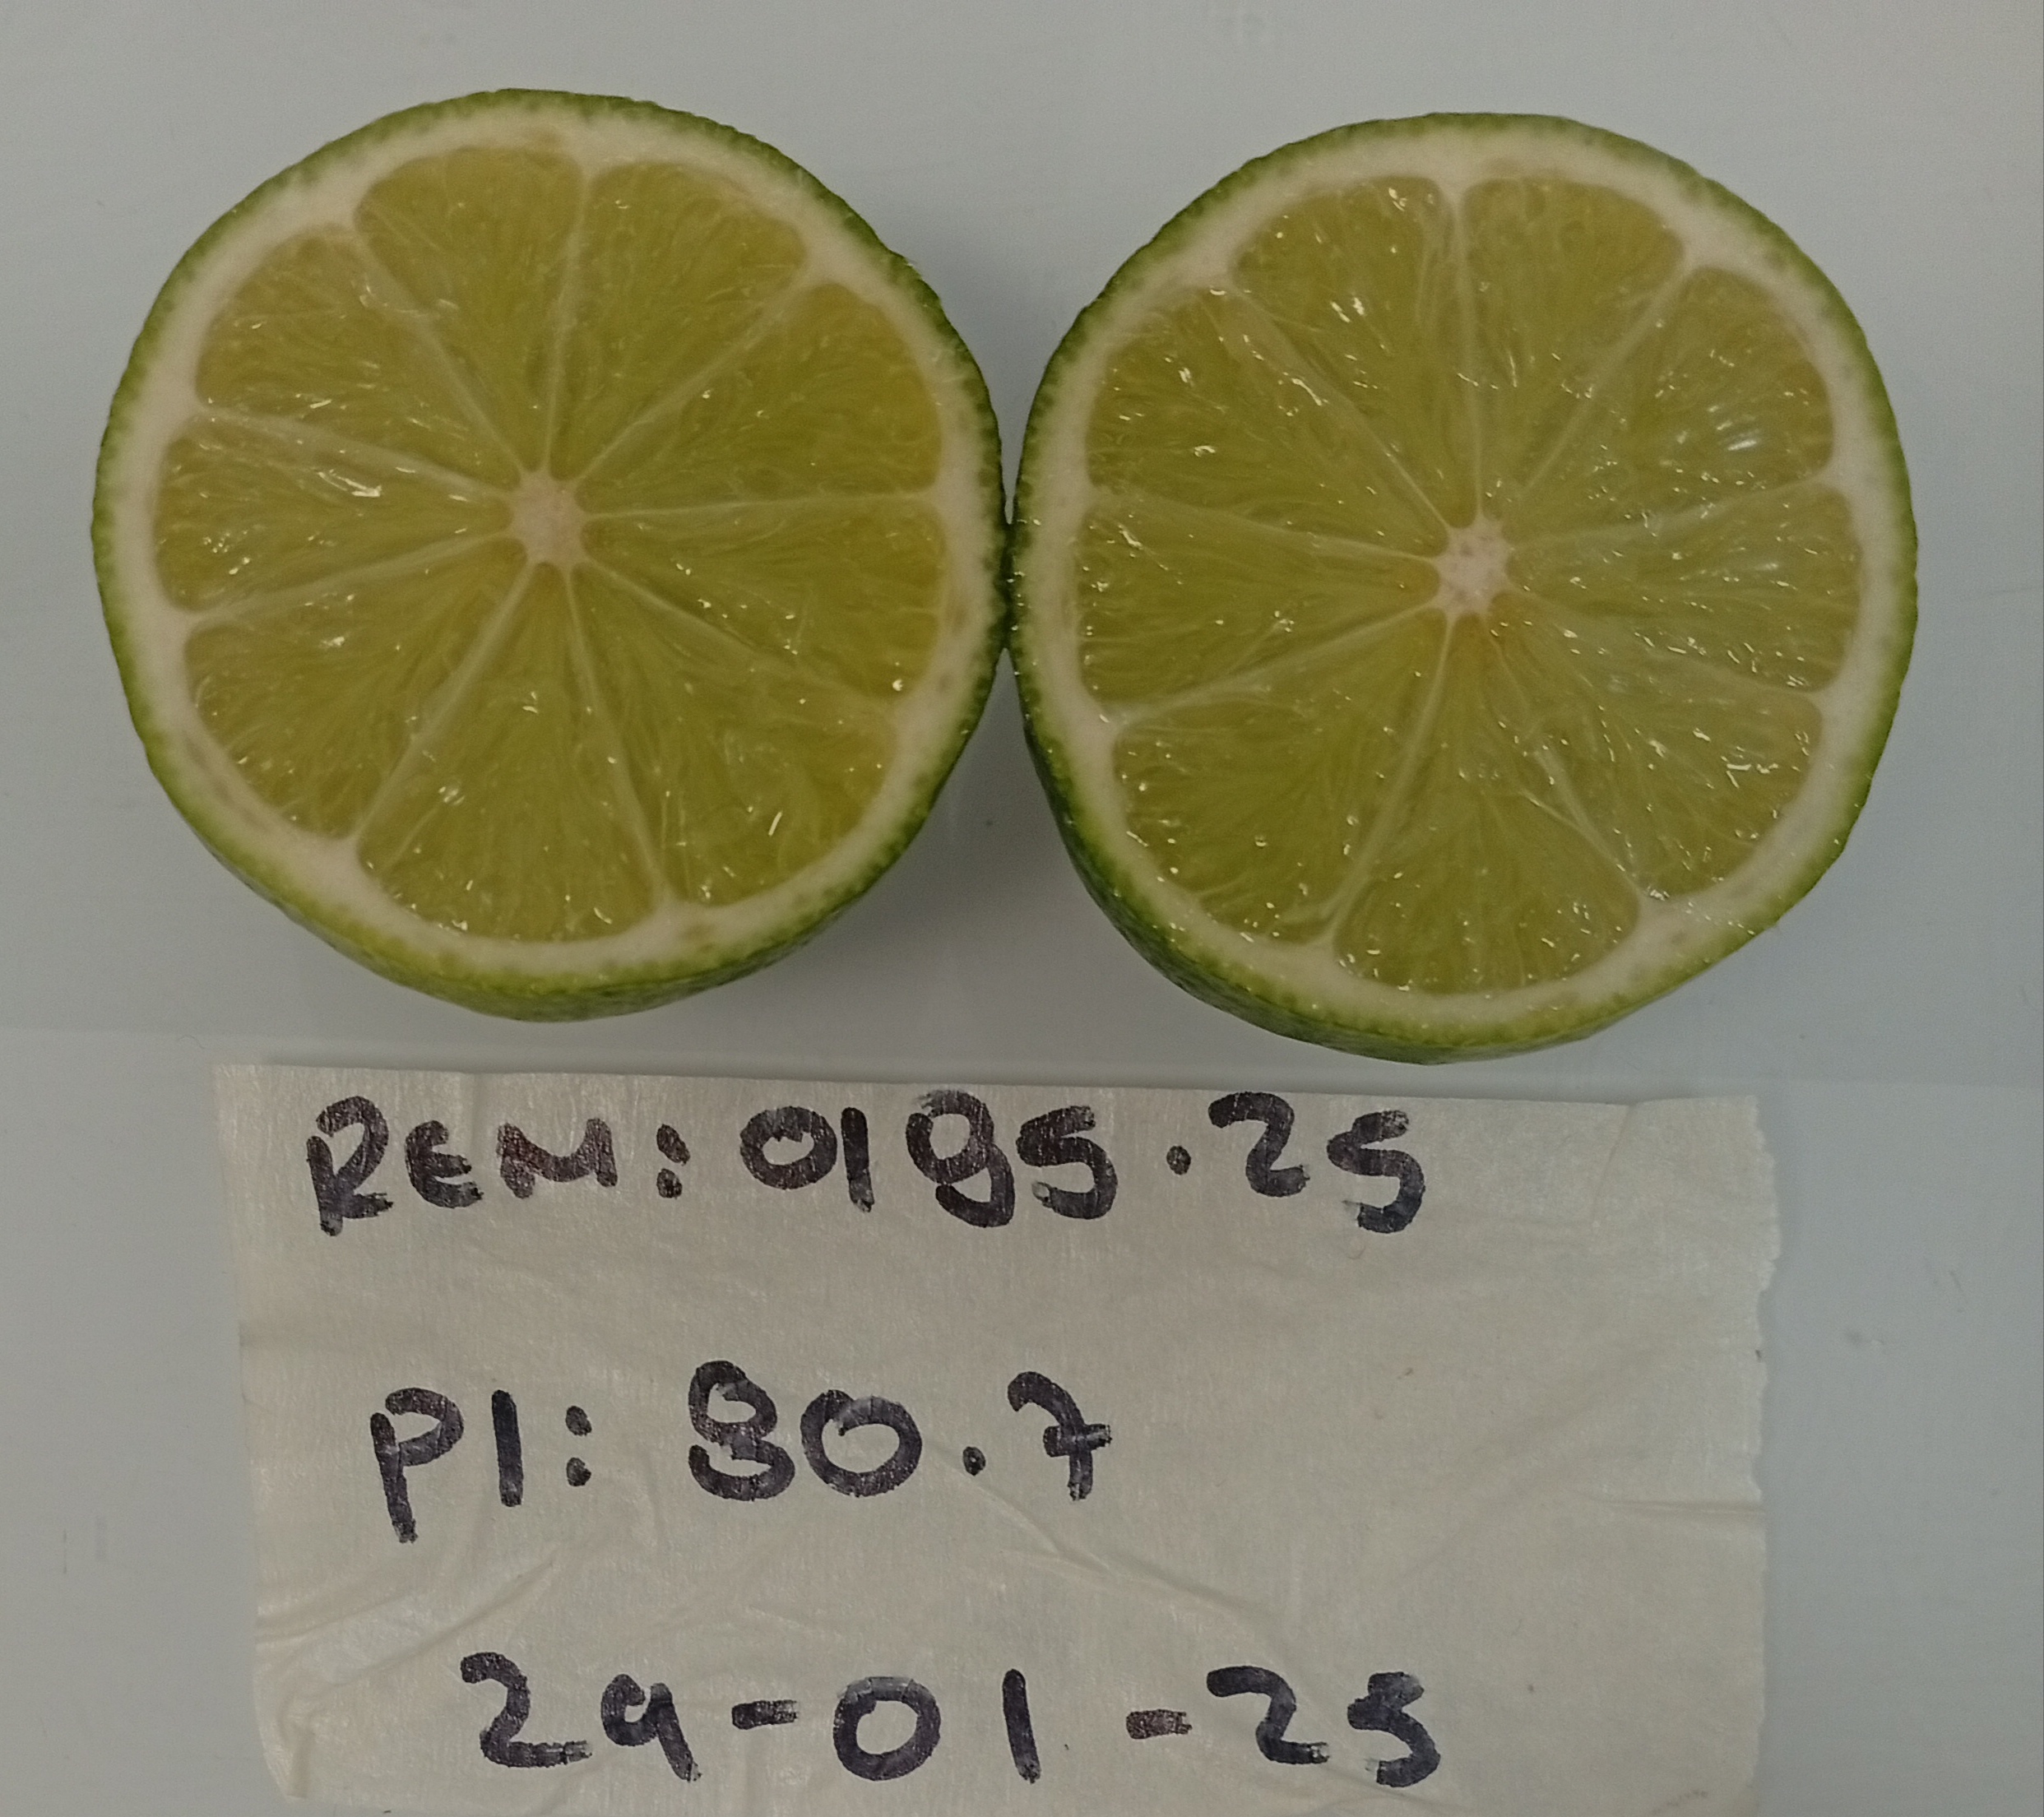 REM: 0195.25
PI: 80.7
29-01-25